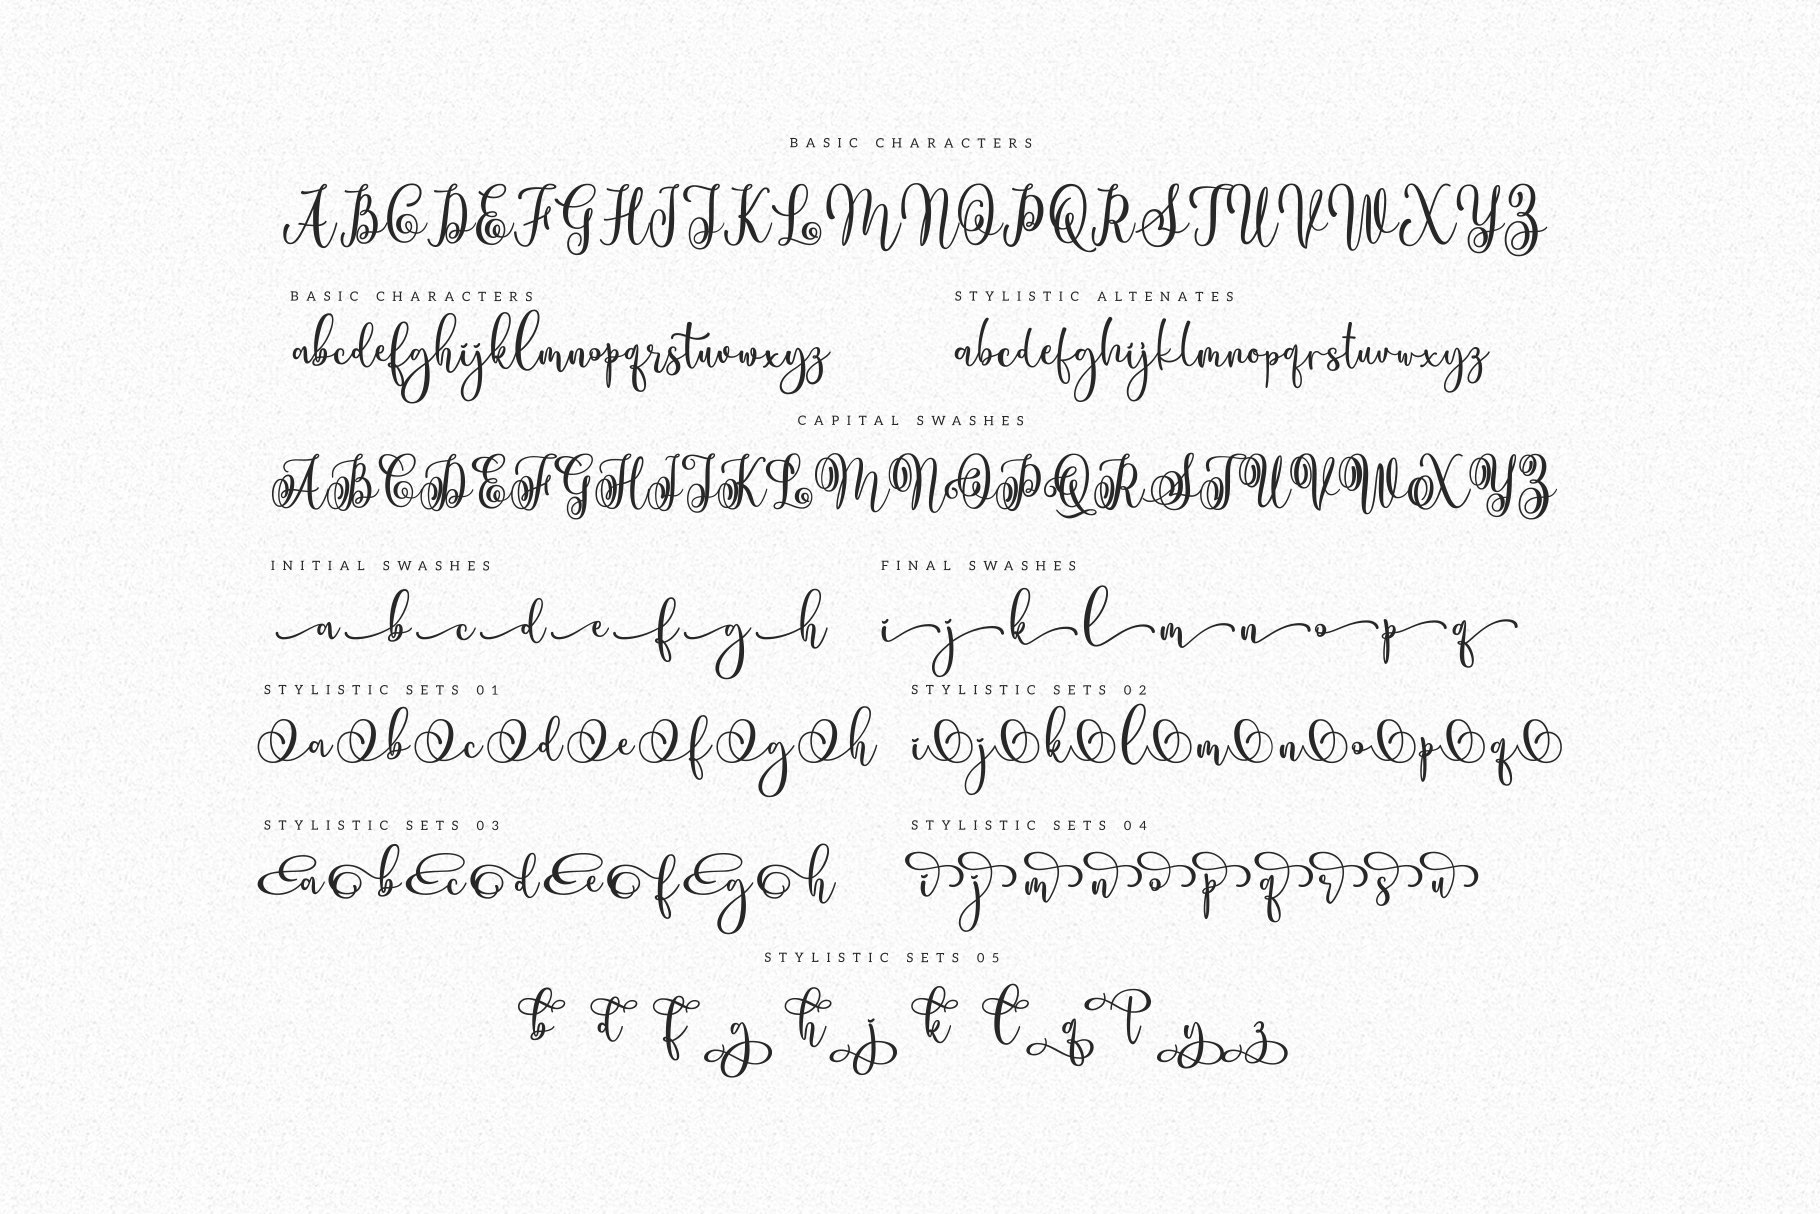 BASIC CHARACTERS
ABCDEFGHIJKLMNOPQRSTUVWXYZ
BASIC CHARACTERS
abcdefghijklmnopqrstuvwxyz
STYLISTIC ALTENATES
abcdefghijklmnopqrstuvwxyz
CAPITAL SWASHES
ABCDEFGHIJKLMNOPQRSTUVWXYZ
INITIAL SWASHES
a b c d e f g h
FINAL SWASHES
i j k l m n o p q
STYLISTIC SETS 01
a b c d e f g h
STYLISTIC SETS 02
i j k l m n o p q
STYLISTIC SETS 03
a b c d e f g h
STYLISTIC SETS 04
i j m n o p q r s u
STYLISTIC SETS 05
b d f g h j k l q t y z